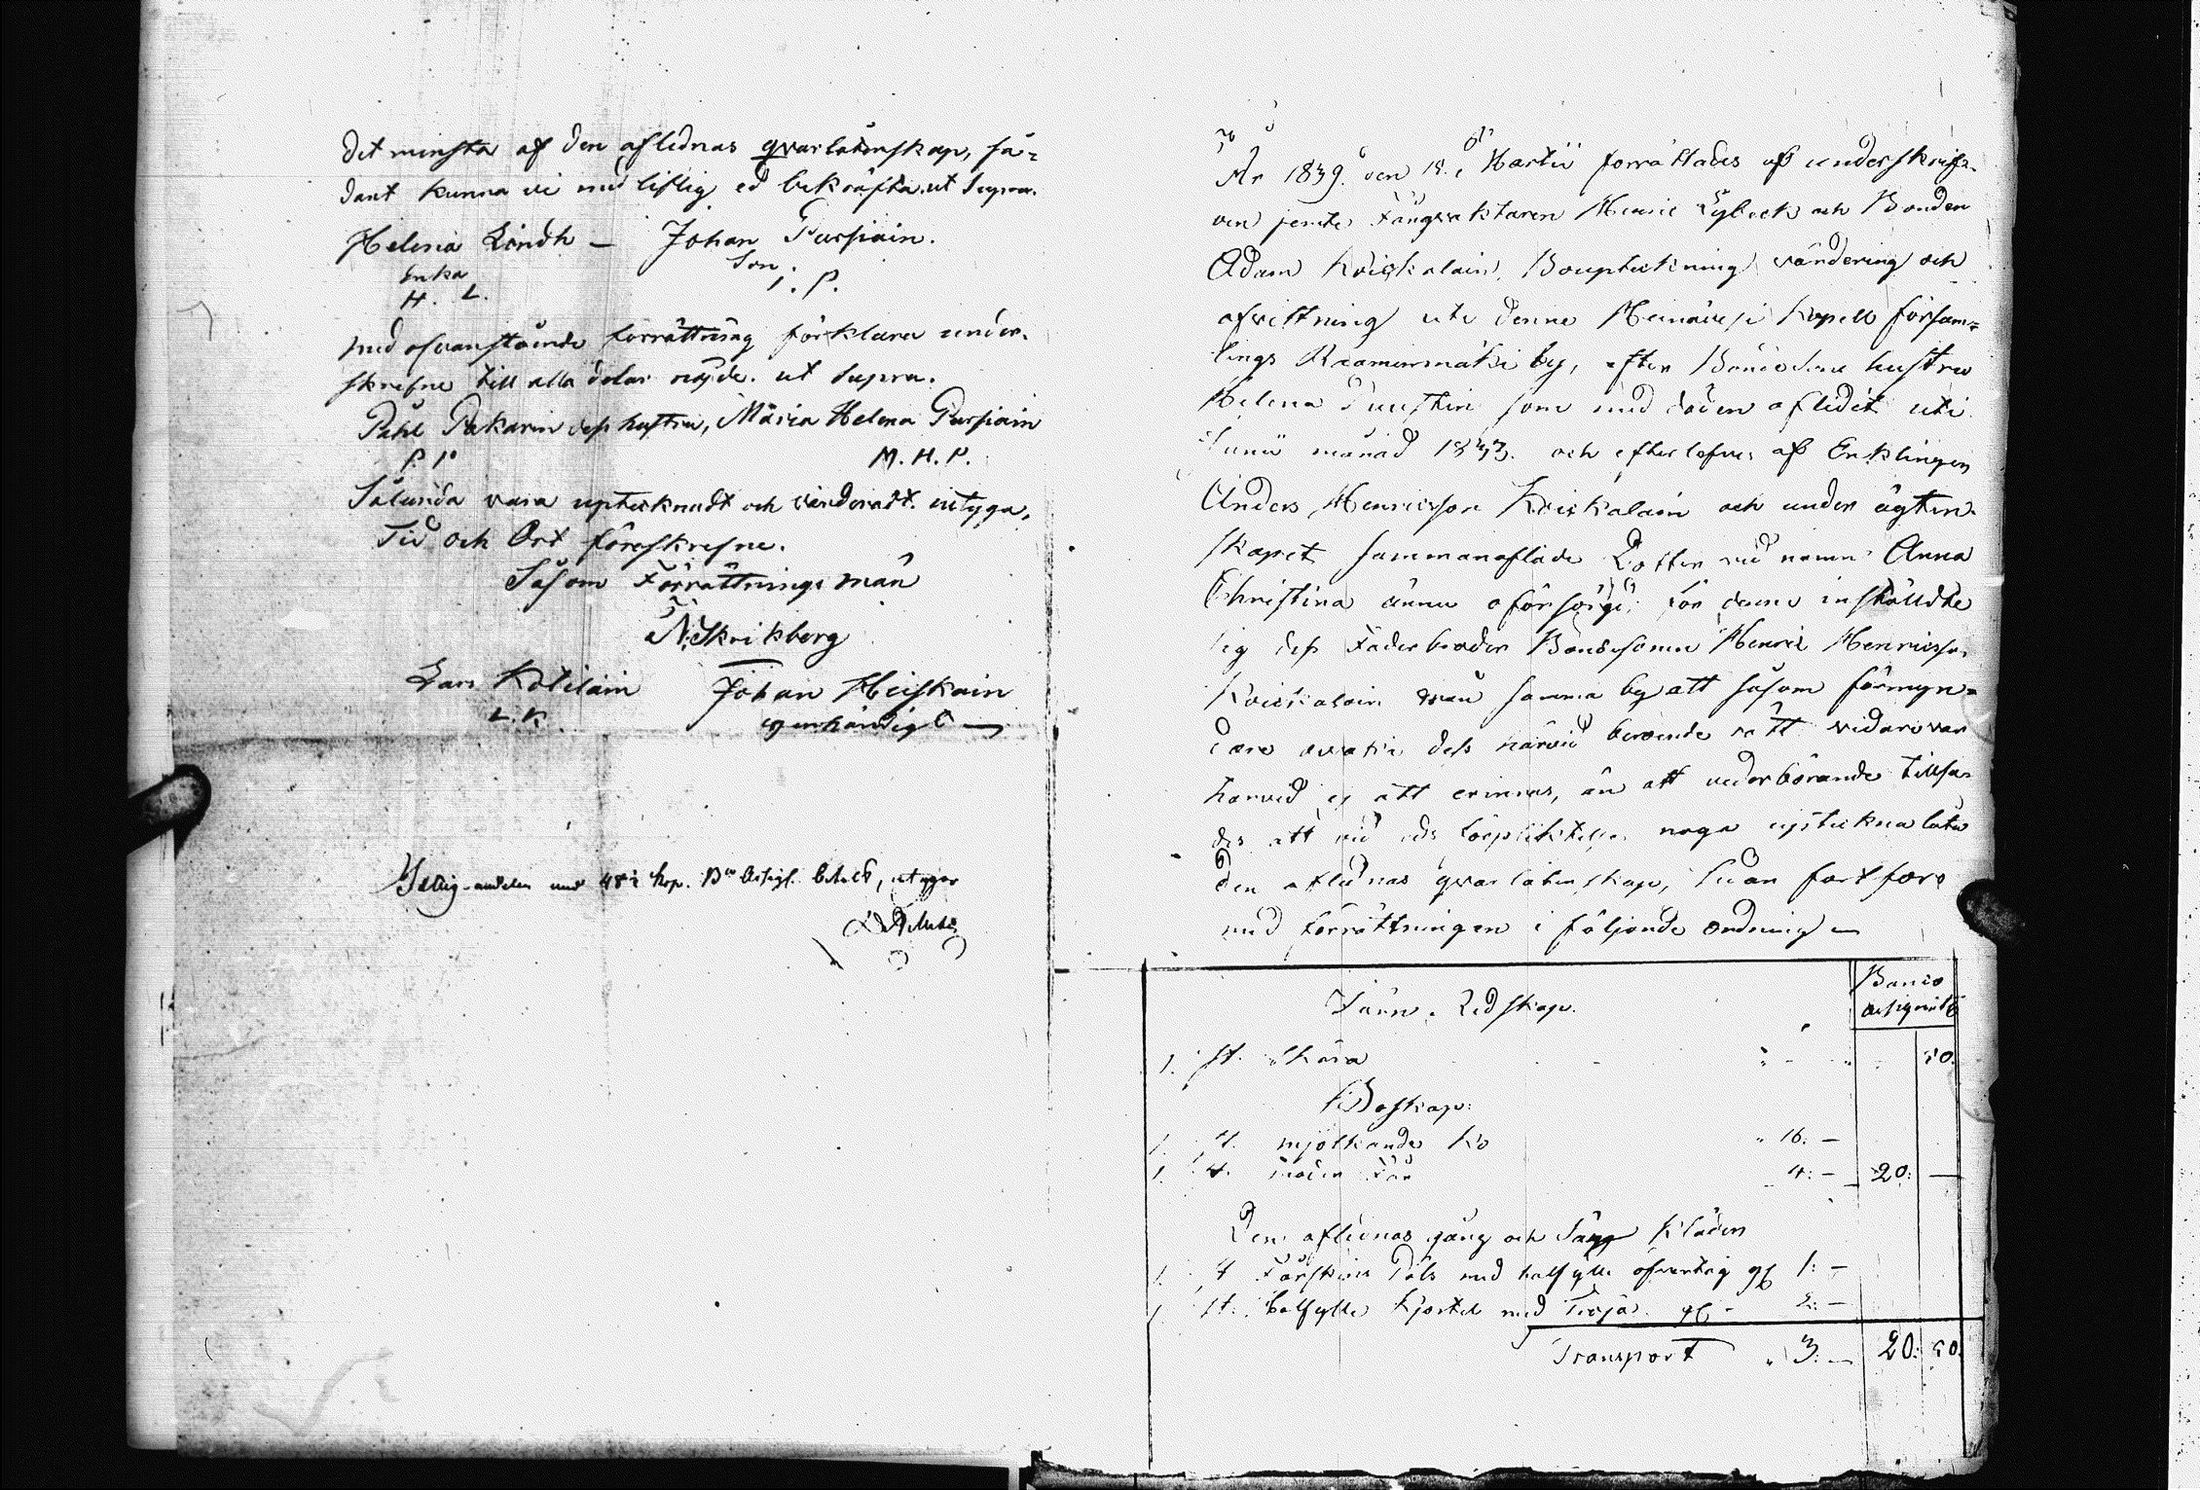 det minsta af den aflednas qvarlåtenskap, så=
dant kunna vi med liflig ed bekräfta. ut Supra.
Helena Lindh — Johan Pursiain.
Enka Son
H. L. J. P.
med ofvanstående förrättning förklara under-
skrefne till alla delar nöjde. ut Supra.
Påhl Pakarin dess hustru, Maria Helena Pursiain
P. P. M. H. P.
Sålunda vara uptecknadt och värderadt. intyga,
Tid och Ort föreskrefne.
Såsom Förrättnings män
N. Skrikberg
Lars Kotilain Johan Heiskain
L. K. egenhändigt —
andelen med 48½ kop. B:co Assigt. betald, intygar
År 1839. den 18. Martii förrättades af underskrif-
ven jemte Fångvaktaren Henric Lybeck och Bonden
Adam Koickalain, Bouptekning värdering och
afvittring uti denne Heinävesi Kapell försam=
lings by, efter Bondens hustru
Helena Puustin som med döden aflidit uti
Junii månad 1833. och efterlefves af Enklingen
Anders Henricsson Koickalain och under ägten-
skapet sammanaflade Dotter vid namn Anna
Christina ännu oförsörgd; för denne instälde
sig dess Faderbroder Bondesonen Henric Henricsson
Koickalain från samma by att såsom förmyn=
dare dess härvid beroende rätt vidare var
härved ej att erinras, än att vederbörande tillsa-
des att vid eds förpliktelse noga uptekna låta
den aflednas qvarlåtenskap, sedan fortfors
med förrättningen i följande ordning —
Järn. Redskap. Banco assignats
1. st. skära 50.
Boskap:
1. st. mjölkande Ko " 16: —
1. st. moder Får 4: — 20: —
Den aflednas gång och Säng Kläder
1. st. Fårskins Päls med halfylle öfvertåg gl 1: —
1. st. halfylle Kjortel med Tröja gl - 2: —
Transport " 3: — 20: 50.